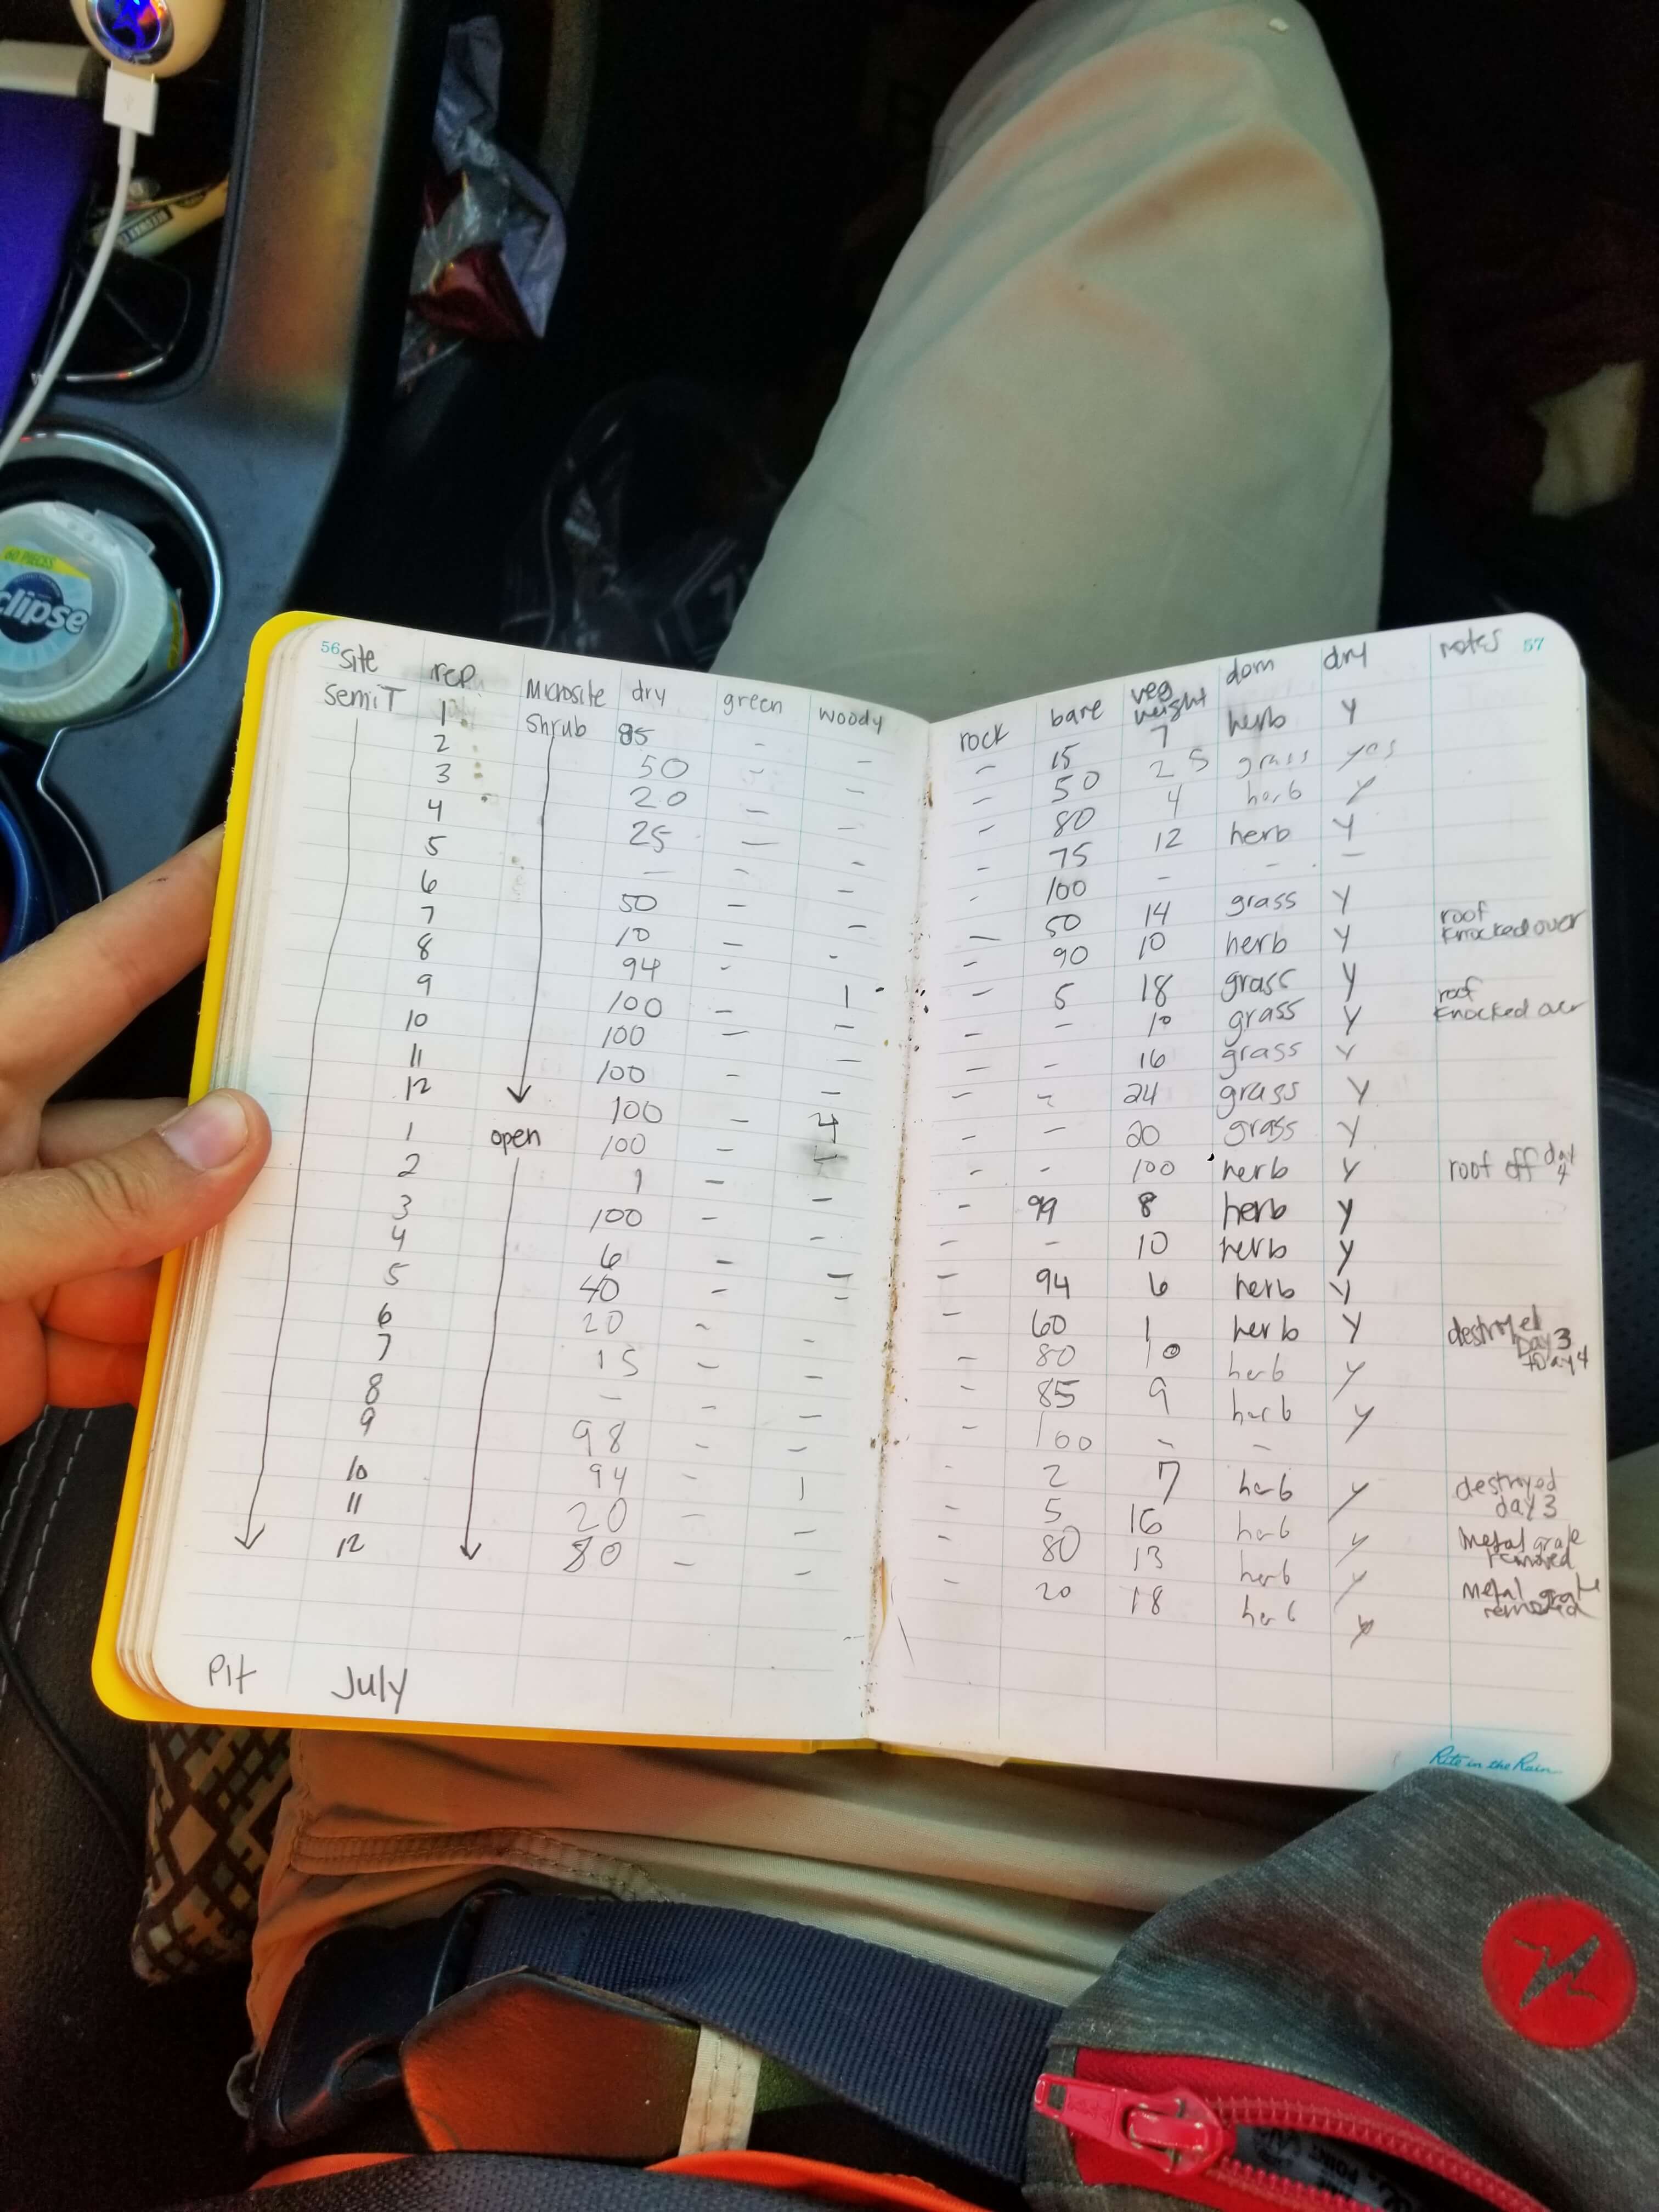 60 PIECES
eclipse
56 site rep. Microsite dry green woody
SemiT 1 Shrub 85 - -
2 50 - -
3 20 - -
4 25 - -
5 - - -
6 50 - -
7 10 - -
8 94 - 1
9 100 - -
10 100 - -
11 100 - -
12 100 -
1 open 100 - -
2 1 - -
3 100 - -
4 6 - -
5 40 - -
6 20 - -
7 15 - -
8 - - -
9 98 - -
10 94 - 1
11 20 - -
12 80 - -
Pit July
rock bare veg height dom dry notes 57
- 15 7 herb y
- 50 25 grass yes
- 80 4 herb y
- 75 12 herb y
- 100 - - -
- 50 14 grass y roof knocked over
- 90 10 herb y
- 5 18 grass y roof knocked over
- - 10 grass y
- - 16 grass y
- - 24 grass y
- - 20 grass y
- - 100 herb y roof off day 4
- 99 8 herb y
- - 10 herb y
- 94 6 herb y
- 60 1 herb y destroyed Day 3 to Day 4
- 80 10 herb y
- 85 9 herb y
- 100 - -
- 2 7 herb y destroyed day 3
- 5 16 herb y Metal grate removed
- 80 13 herb y Metal grate removed
- 20 18 herb y
Rite in the Rain